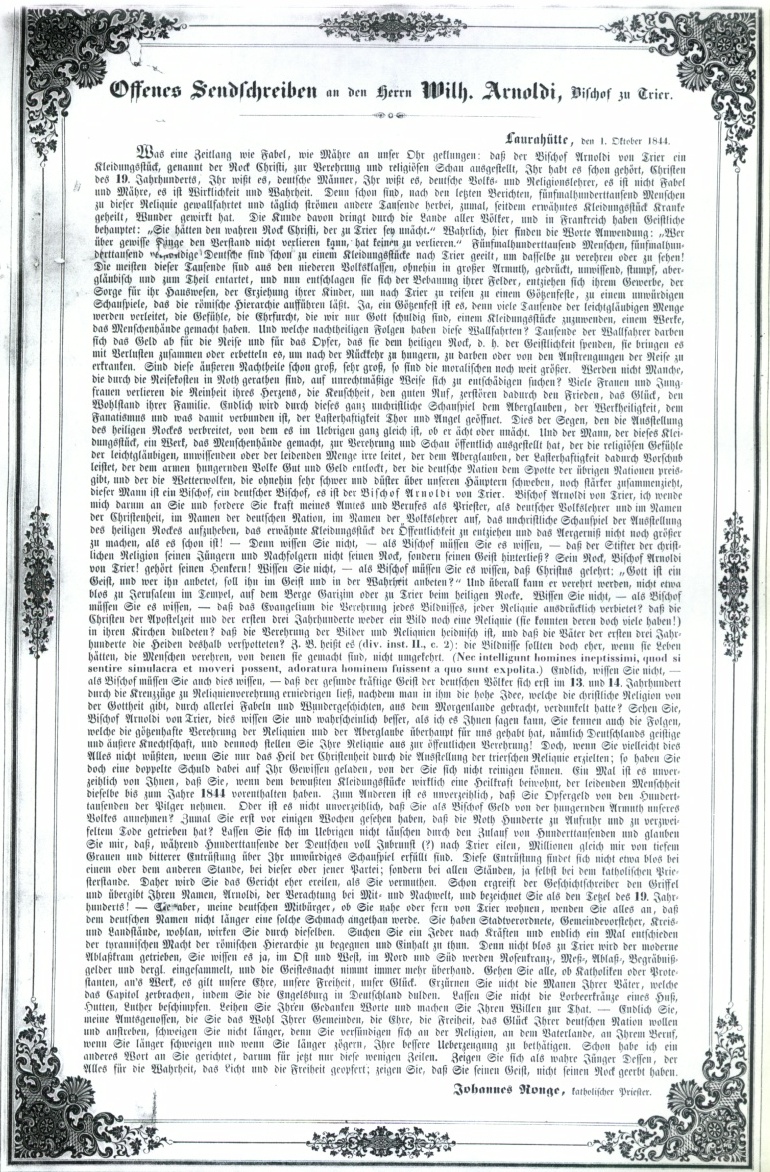 Offenes Sendschreiben an den Herrn Wilh. Arnoldi, Bischof zu Trier.
Laurahütte, den 1. Oktober 1844.
Was eine Zeitlang wie Fabel, wie Mähre an unser Ohr geklungen: daß der Bischof Arnoldi von Trier ein
Kleidungsstück, genannt der Rock Christi, zur Verehrung und religiösen Schau ausgestellt, Ihr habt es schon gehört, Christen
des 19. Jahrhunderts, Ihr wißt es, deutsche Männer, Ihr wißt es, deutsche Volks- und Religionslehrer, es ist nicht Fabel
und Mähre, es ist Wirklichkeit und Wahrheit. Denn schon sind, nach den letzten Berichten, fünfmalhunderttausend Menschen
zu dieser Reliquie gewallfahrtet und täglich strömen andere Tausende herbei, zumal, seitdem erwähntes Kleidungsstück Kranke
geheilt, Wunder gewirkt hat. Die Kunde davon dringt durch die Lande aller Völker, und in Frankreich haben Geistliche
behauptet: „Sie hätten den wahren Rock Christi, der zu Trier sey unächt.“ Wahrlich, hier finden die Worte Anwendung: „Wer
über gewisse Dinge den Verstand nicht verlieren kann, hat keinen zu verlieren.“ Fünfmalhunderttausend Menschen, fünfmalhun-
derttausend verständige Deutsche sind schon zu einem Kleidungsstücke nach Trier geeilt, um dasselbe zu verehren oder zu sehen!
Die meisten dieser Tausende sind aus den niederen Volksklassen, ohnehin in großer Armuth, gedrückt, unwissend, stumpf, aber-
gläubisch und zum Theil entartet, und nun entschlagen sie sich der Bebauung ihrer Felder, entziehen sich ihrem Gewerbe, der
Sorge für ihr Hauswesen, der Erziehung ihrer Kinder, um nach Trier zu reisen zu einem Götzenfeste, zu einem unwürdigen
Schauspiele, das die römische Hierarchie aufführen läßt. Ja, ein Götzenfest ist es, denn viele Tausende der leichtgläubigen Menge
werden verleitet, die Gefühle, die Ehrfurcht, die wir nur Gott schuldig sind, einem Kleidungsstücke zuzuwenden, einem Werke,
das Menschenhände gemacht haben. Und welche nachtheiligen Folgen haben diese Wallfahrten? Tausende der Wallfahrer darben
sich das Geld ab für die Reise und für das Opfer, das sie dem heiligen Rock, d. h. der Geistlichkeit spenden, sie bringen es
mit Verlusten zusammen oder erbetteln es, um nach der Rückkehr zu hungern, zu darben oder von den Anstrengungen der Reise zu
erkranken. Sind diese äußeren Nachtheile schon groß, sehr groß, so sind die moralischen noch weit größer. Werden nicht Manche,
die durch die Reisekosten in Noth gerathen sind, auf unrechtmäßige Weise sich zu entschädigen suchen? Viele Frauen und Jung-
frauen verlieren die Reinheit ihres Herzens, die Keuschheit, den guten Ruf, zerstören dadurch den Frieden, das Glück, den
Wohlstand ihrer Familie. Endlich wird durch dieses ganz unchristliche Schauspiel dem Aberglauben, der Werkheiligkeit, dem
Fanatismus und was damit verbunden ist, der Lasterhaftigkeit Thor und Angel geöffnet. Dies der Segen, den die Ausstellung
des heiligen Rockes verbreitet, von dem es im Uebrigen ganz gleich ist, ob er ächt oder unächt. Und der Mann, der dieses Klei-
dungsstück, ein Werk, das Menschenhände gemacht, zur Verehrung und Schau öffentlich ausgestellt hat, der die religiösen Gefühle
der leichtgläubigen, unwissenden oder der leidenden Menge irre leitet, der dem Aberglauben, der Lasterhaftigkeit dadurch Vorschub
leistet, der dem armen hungernden Volke Gut und Geld entlockt, der die deutsche Nation dem Spotte der übrigen Nationen preis-
gibt, und der die Wetterwolken, die ohnehin sehr schwer und düster über unseren Häuptern schweben, noch stärker zusammenzieht,
dieser Mann ist ein Bischof, ein deutscher Bischof, es ist der Bischof Arnoldi von Trier. Bischof Arnoldi von Trier, ich wende
mich darum an Sie und fordere Sie kraft meines Amtes und Berufes als Priester, als deutscher Volkslehrer und im Namen
der Christenheit, im Namen der deutschen Nation, im Namen der Volkslehrer auf, das unchristliche Schauspiel der Ausstellung
des heiligen Rockes aufzuheben, das erwähnte Kleidungsstück der Öffentlichkeit zu entziehen und das Aergerniß nicht noch größer
zu machen, als es schon ist! — Denn wissen Sie nicht, — als Bischof müssen Sie es wissen, — daß der Stifter der christ-
lichen Religion seinen Jüngern und Nachfolgern nicht seinen Rock, sondern seinen Geist hinterließ? Sein Rock, Bischof Arnoldi
von Trier! gehört seinen Henkern! Wissen Sie nicht, — als Bischof müssen Sie es wissen, daß Christus gelehrt: „Gott ist ein
Geist, und wer ihn anbetet, soll ihn im Geist und in der Wahrheit anbeten?“ Und überall kann er verehrt werden, nicht etwa
blos zu Jerusalem im Tempel, auf dem Berge Garizim oder zu Trier beim heiligen Rocke. Wissen Sie nicht, — als Bischof
müssen Sie es wissen, — daß das Evangelium die Verehrung jedes Bildnisses, jeder Reliquie ausdrücklich verbietet? daß die
Christen der Apostelzeit und der ersten drei Jahrhunderte weder ein Bild noch eine Reliquie (sie konnten deren doch viele haben!)
in ihren Kirchen duldeten? daß die Verehrung der Bilder und Reliquien heidnisch ist, und daß die Väter der ersten drei Jahr-
hunderte die Heiden deshalb verspotteten? Z. B. heißt es (div. inst. II., c. 2): die Bildnisse sollten doch eher, wenn sie Leben
hätten, die Menschen verehren, von denen sie gemacht sind, nicht umgekehrt. (Nec intelligunt homines ineptissimi, quod si
sentire simulacra et moveri possent, adoratura hominem fuissent a quo sunt expolita.) Endlich, wissen Sie nicht, —
als Bischof müssen Sie auch dies wissen, — daß der gesunde kräftige Geist der deutschen Völker sich erst im 13. und 14. Jahrhundert
durch die Kreuzzüge zu Reliquienverehrung erniedrigen ließ, nachdem man in ihm die hohe Idee, welche die christliche Religion von
der Gottheit gibt, durch allerlei Fabeln und Wundergeschichten, aus dem Morgenlande gebracht, verdunkelt hatte? Sehen Sie,
Bischof Arnoldi von Trier, dies wissen Sie und wahrscheinlich besser, als ich es Ihnen sagen kann, Sie kennen auch die Folgen,
welche die götzenhafte Verehrung der Reliquien und der Aberglaube überhaupt für uns gehabt hat, nämlich Deutschlands geistige
und äußere Knechtschaft, und dennoch stellen Sie Ihre Reliquie aus zur öffentlichen Verehrung! Doch, wenn Sie vielleicht dies
Alles nicht wüßten, wenn Sie nur das Heil der Christenheit durch die Ausstellung der trierschen Reliquie erzielten; so haben Sie
doch eine doppelte Schuld dabei auf Ihr Gewissen geladen, von der Sie sich nicht reinigen können. Ein Mal ist es unver-
zeihlich von Ihnen, daß Sie, wenn dem bewußten Kleidungsstücke wirklich eine Heilkraft beiwohnt, der leidenden Menschheit
dieselbe bis zum Jahre 1844 vorenthalten haben. Zum Anderen ist es unverzeihlich, daß Sie Opfergeld von den Hundert-
tausenden der Pilger nehmen. Oder ist es nicht unverzeihlich, daß Sie als Bischof Geld von der hungernden Armuth unseres
Volkes annehmen? Zumal Sie erst vor einigen Wochen gesehen haben, daß die Noth Hunderte zu Aufruhr und zu verzwei-
feltem Tode getrieben hat? Lassen Sie sich im Uebrigen nicht täuschen durch den Zulauf von Hunderttausenden und glauben
Sie mir, daß, während Hunderttausende der Deutschen voll Inbrunst (?) nach Trier eilen, Millionen gleich mir von tiefem
Grauen und bitterer Entrüstung über Ihr unwürdiges Schauspiel erfüllt sind. Diese Entrüstung findet sich nicht etwa blos bei
einem oder dem anderen Stande, bei dieser oder jener Partei; sondern bei allen Ständen, ja selbst bei dem katholischen Prie-
sterstande. Daher wird Sie das Gericht eher ereilen, als Sie vermuthen. Schon ergreift der Geschichtschreiber den Griffel
und übergibt Ihren Namen, Arnoldi, der Verachtung bei Mit- und Nachwelt, und bezeichnet Sie als den Tetzel des 19. Jahr-
hunderts! — Sie aber, meine deutschen Mitbürger, ob Sie nahe oder fern von Trier wohnen, wenden Sie alles an, daß
dem deutschen Namen nicht länger eine solche Schmach angethan werde. Sie haben Stadtverordnete, Gemeindevorsteher, Kreis-
und Landstände, wohlan, wirken Sie durch dieselben. Suchen Sie ein Jeder nach Kräften und endlich ein Mal entschieden
der tyrannischen Macht der römischen Hierarchie zu begegnen und Einhalt zu thun. Denn nicht blos zu Trier wird der moderne
Ablaßkram getrieben, Sie wissen es ja, im Ost und West, im Nord und Süd werden Rosenkranz-, Meß-, Ablaß-, Begräbniß-
gelder und dergl. eingesammelt, und die Geistesnacht nimmt immer mehr überhand. Gehen Sie alle, ob Katholiken oder Prote-
stanten, an's Werk, es gilt unsere Ehre, unsere Freiheit, unser Glück. Erzürnen Sie nicht die Manen Ihrer Väter, welche
das Capitol zerbrachen, indem Sie die Engelsburg in Deutschland dulden. Lassen Sie nicht die Lorbeerkränze eines Huß,
Hutten, Luther beschimpfen. Leihen Sie Ihren Gedanken Worte und machen Sie Ihren Willen zur That. — Endlich Sie,
meine Amtsgenossen, die Sie das Wohl Ihrer Gemeinden, die Ehre, die Freiheit, das Glück Ihrer deutschen Nation wollen
und anstreben, schweigen Sie nicht länger, denn Sie versündigen sich an der Religion, an dem Vaterlande, an Ihrem Beruf,
wenn Sie länger schweigen und wenn Sie länger zögern, Ihre bessere Ueberzeugung zu bethätigen. Schon habe ich ein
anderes Wort an Sie gerichtet, darum für jetzt nur diese wenigen Zeilen. Zeigen Sie sich als wahre Jünger Dessen, der
Alles für die Wahrheit, das Licht und die Freiheit geopfert; zeigen Sie, daß Sie seinen Geist, nicht seinen Rock geerbt haben.
Johannes Ronge, katholischer Priester.